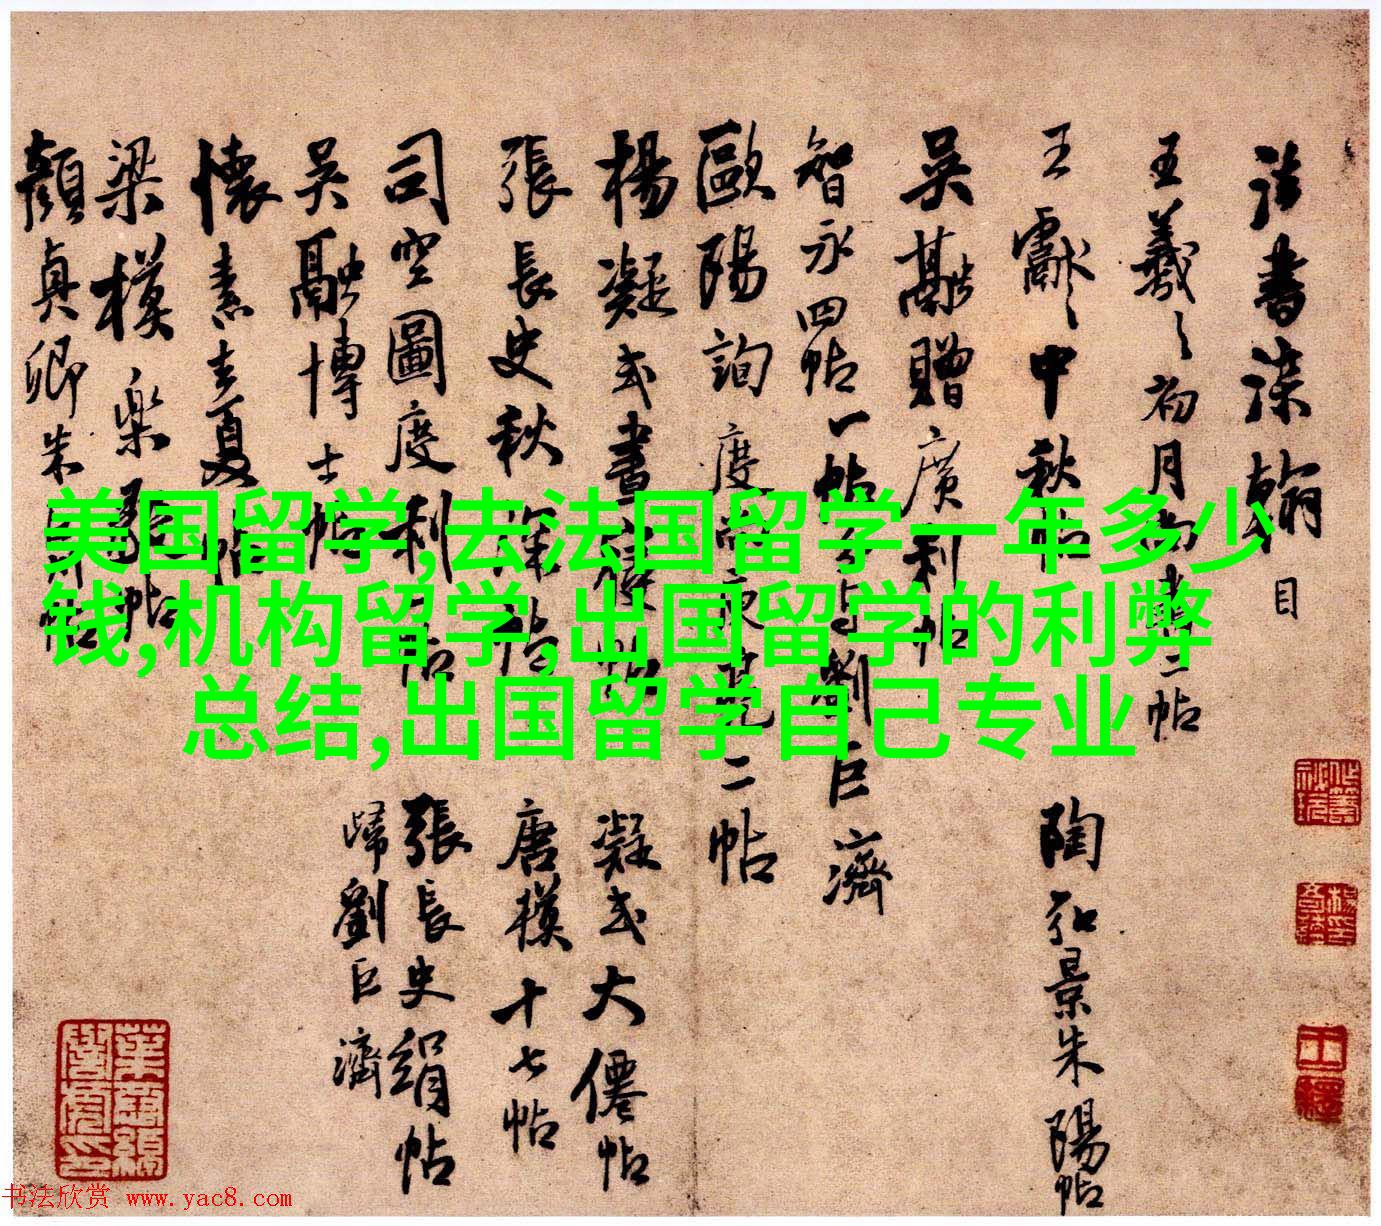 法書染翰目
王羲之初月尚書二帖
王獻之中秋帖
陶弘景朱陽帖
吳融贈廣利帖
智永四帖一帖歸劉巨濟
歐陽詢度尚庾亮二帖
楊凝式書襄帖
凝式大僊帖
張長史秋深帖
唐模十七帖
司空圖度利帖
張長史絹帖
歸劉巨濟
吳融博士帖
懷素夏帖
梁模樂毅帖
顏真卿朱帖
美国留学,去法国留学一年多少
钱,机构留学,出国留学的利弊
总结,出国留学自己专业
书法欣赏 www.yac8.com